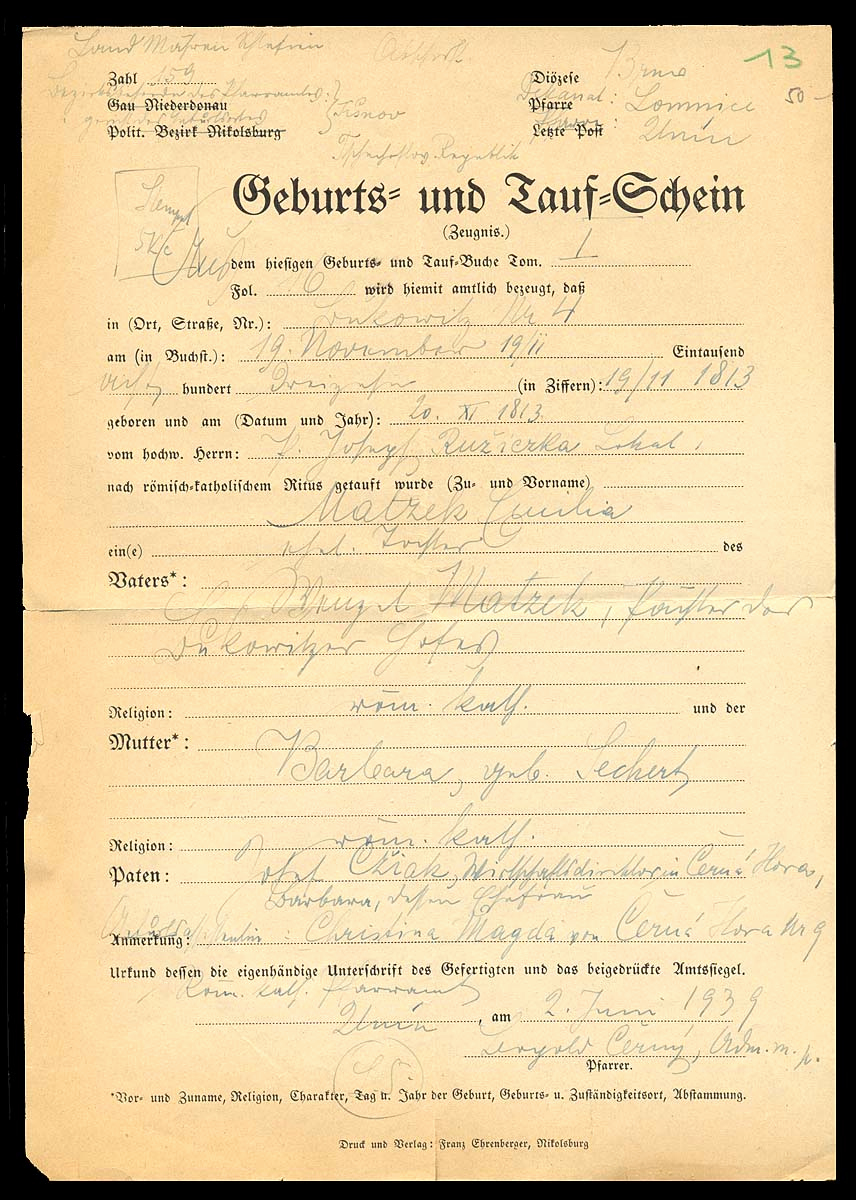 Land Mähren Schlesien
Abschrift
13
Zahl 159
Diözese Brno
50
Bezirksbehörde des Pfarramtes:
Gau Niederdonau
Dekanat:
Pfarre Lomnice
gericht des Geburtsortes
Tišnov
Polit. Bezirk Nikolsburg
Pfarre:
Letzte Post Unín
Tschechoslov. Republik
Stempel
5 Kč
Geburts- und Tauf-Schein
(Zeugnis.)
Aus dem hiesigen Geburts- und Tauf-Buche Tom. I
Fol. wird hiemit amtlich bezeugt, daß
in (Ort, Straße, Nr.): Nr 4
am (in Buchst.): 19. November 19/11 Eintausend
acht hundert Dreizehn (in Ziffern): 19/11 1813
geboren und am (Datum und Jahr): 20. XI 1813
vom hochw. Herrn: P. Josef Ružiczka Lokal.
nach römisch-katholischem Ritus getauft wurde (Zu- und Vorname)
Matzek Emilia
ein(e) ehel. Tochter des
Vaters*:
Wenzel Matzek, des
Hofes
Religion: röm. kath. und der
Mutter*:
Barbara, geb.
Religion: röm. kath.
Paten: Josef Wirtschaftsdirektor in Černá Hora,
Barbara, dessen Ehefrau
Anmerkung: Christina Magda von Černá Hora Nr 9
Urkund dessen die eigenhändige Unterschrift des Gefertigten und das beigedrückte Amtssiegel.
Röm. kath. Pfarramt
Unín, am 2. Juni 1939
Leopold Černý, Adm. m. p.
Pfarrer.
L. S.
*Vor- und Zuname, Religion, Charakter, Tag u. Jahr der Geburt, Geburts- u. Zuständigkeitsort, Abstammung.
Druck und Verlag: Franz Ehrenberger, Nikolsburg